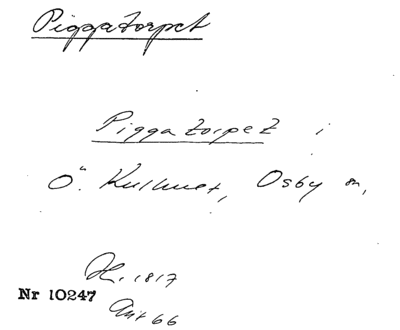 Piggatorpet
Piggatorpet i
Ö. Kullmet, Osby sn,
H. 1817
Nr 10247
Ant 66